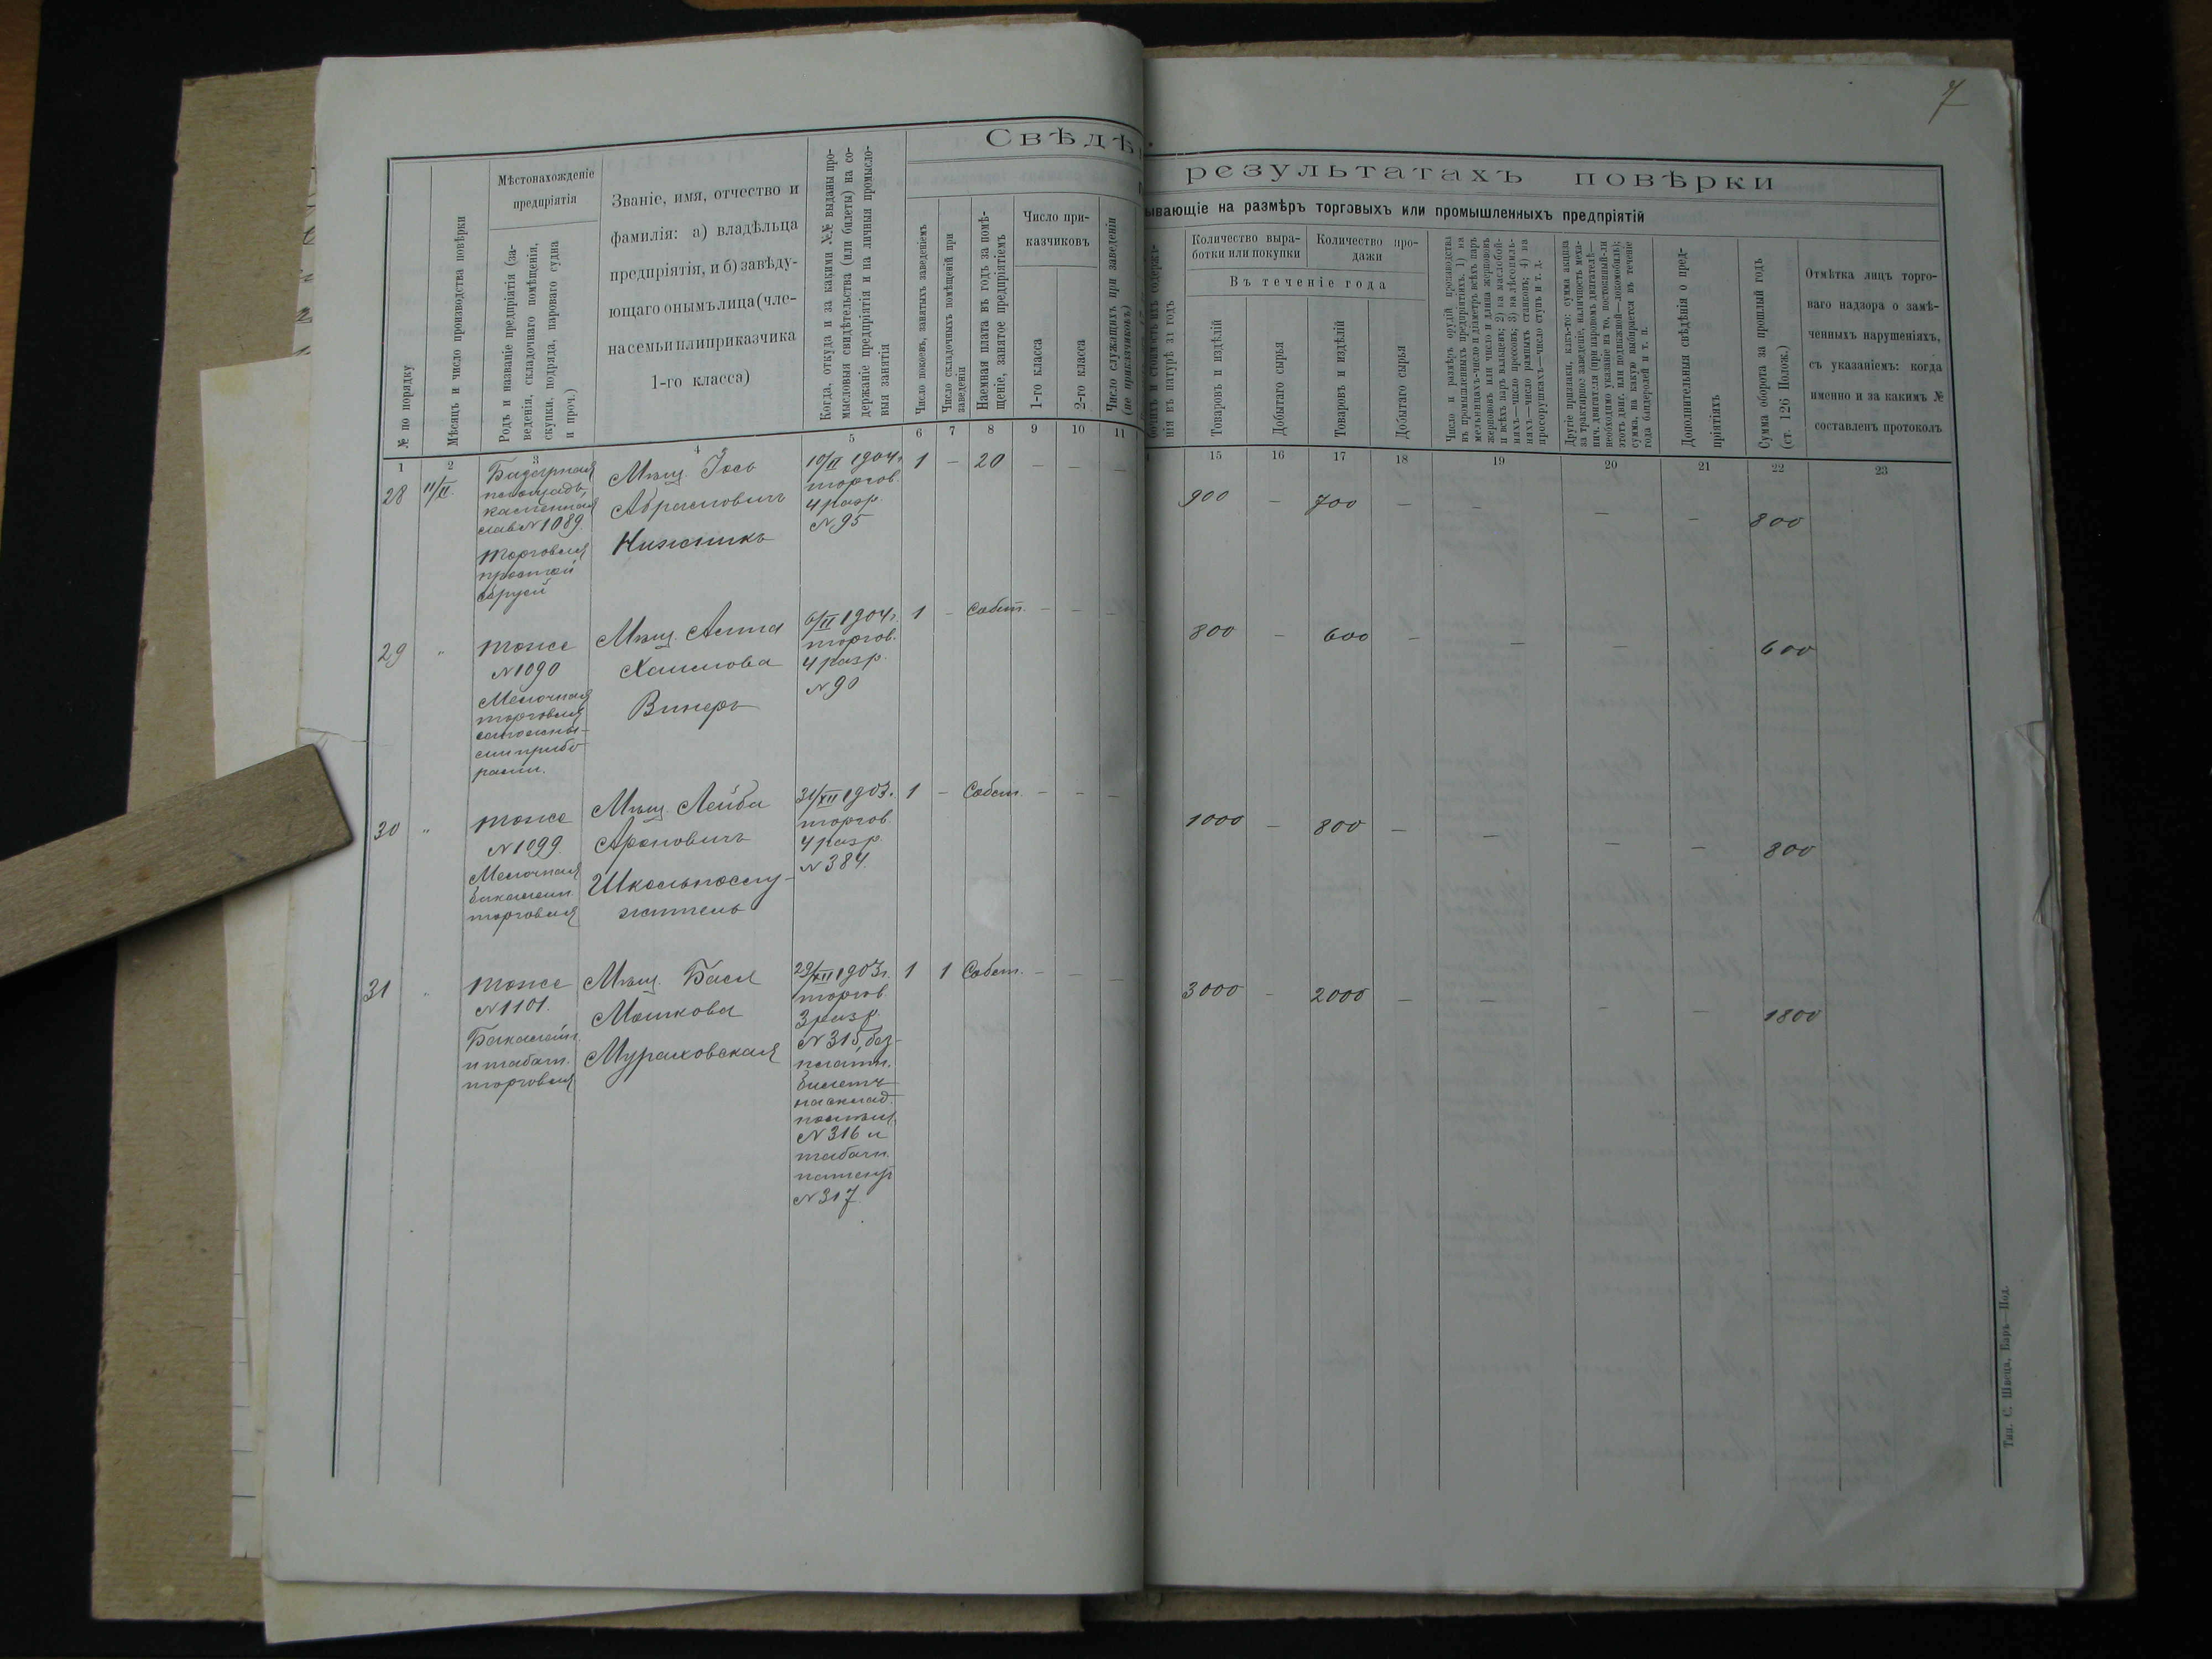 7
Свѣдѣ
результатахъ повѣрки
ывающіе на размѣръ торговыхъ или промышленныхъ предпріятій
№ по порядку
Мѣсяцъ и число производства повѣрки
Мѣстонахожденіе
предпріятія
Родъ и названіе предпріятія (за-
веденія, складочнаго помѣщенія,
скупки, подряда, пароваго судна
и проч.)
Званіе, имя, отчество и
фамилія: а) владѣльца
предпріятія, и б) завѣду-
ющаго онымъ лица (чле-
на семьи или приказчика
1-го класса)
Когда, откуда и за какими №№ выданы про-
мысловыя свидѣтельства (или билеты) на со-
держаніе предпріятія и на личныя промысло-
выя занятія
Число покоевъ, занятыхъ заведеніемъ
Число складочныхъ помѣщеній при
заведеніи
Наемная плата въ годъ за помѣ-
щеніе, занятое предпріятіемъ
Число при-
казчиковъ
1-го класса
2-го класса
Число служащихъ при заведеніи
(не приказчиковъ)
нія въ натурѣ за годъ
Количество выра-
ботки или покупки
Количество про-
дажи
Въ теченіе года
Товаровъ и издѣлій
Добытаго сырья
Товаровъ и издѣлій
Добытаго сырья
Число и размѣръ орудій производства
въ промышленныхъ предпріятіяхъ. 1) на
мельницахъ—число и діаметръ всѣхъ паръ
жернововъ или число и длина жернововъ
и всѣхъ паръ вальцевъ; 2) на маслобой-
няхъ—число прессовъ; 3) на лѣсопиль-
няхъ—число рамныхъ станковъ; 4) на
просорушкахъ—число ступъ и т. д.
Другіе признаки, какъ-то: сумма акциза
за трактирное заведеніе, наличность меха-
нич. двигателя (при паровомъ двигателѣ—
необходимо указаніе на то, постоянный-ли
этотъ двиг. или подвижной—локомобиль);
сумма, на какую выбирается въ теченіе
года бандеролей и т. п.
Дополнительныя свѣдѣнія о пред-
пріятіяхъ
Сумма оборота за прошлый годъ
(ст. 126 Полож.)
Отмѣтка лицъ торго-
ваго надзора о замѣ-
ченныхъ нарушеніяхъ,
съ указаніемъ: когда
именно и за какимъ №
составленъ протоколъ
1 2 3 4 5 6 7 8 9 10 11 15 16 17 18 19 20 21 22 23
28 11/II. Базарная
площадь,
каменная
лав № 1089.
Торговля
простой
сбруей
Мѣщ. Іось
Абрамовичъ
Нижникъ
10/II 1904г
торгов.
4 разр.
№ 95
1 — 20 — — — 900 — 700 — — — — 800
29 " тоже
№ 1090
Мелочная
торговля
сапожны-
ми прибо
рами.
Мѣщ. Хаимова
Винеръ
6/II 1904г.
торгов.
4 разр.
№ 90
1 — Собст. — — — 800 — 600 — — — - 600
30 " тоже
№ 1099.
Мелочная
бакалейн.
торговля
Мѣщ. Лейба
Ароновичъ
Школьнослу-
житель
31/XII 1903.
торгов.
4 разр.
№ 384.
1 — Собст. — — — 1000 — 800 — — — — 800
31 " тоже
№ 1101.
Бакалейн.
и табачн.
торговля
Мѣщ. Бася
Мошкова
Мураховская
29/XII 1903г.
торгов.
3 разр.
№ 315, без-
платн.
билетъ
на склад.
помѣщ.
№ 316 и
табачн.
патентъ
№ 317.
1 1 Собст. — — — 3000 — 2000 — — — — 1800
Тип. С. Швеца, Баръ—Под.